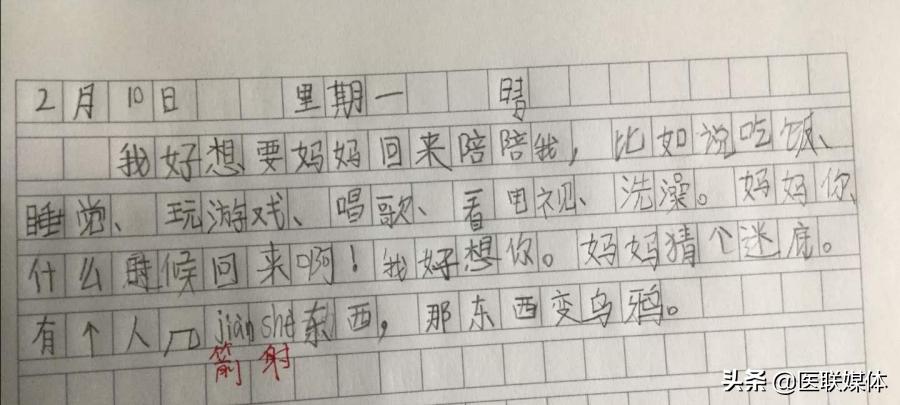 2月10日 里期一 晴
我好想要妈妈回来陪陪我，比如说吃饭、
睡觉、玩游戏、唱歌、看电视、洗澡。妈妈你
什么时候回来啊！我好想你。妈妈猜个迷底。
有个人 jiàn shè 东西，那东西变乌鸦。
箭 射
头条 @医联媒体